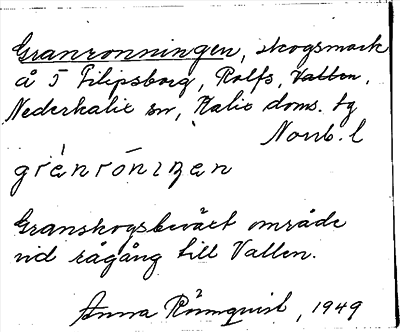 Granronningen, skogsmark
å 5 Filipsborg, Rolfs, Vallen,
Nederkalix sn, Kalix doms. tg
Norrb. l
grànróniŋen
Granskogsbeväxt område
vid rågång till Vallen.
Anna Rönnqvist, 1949